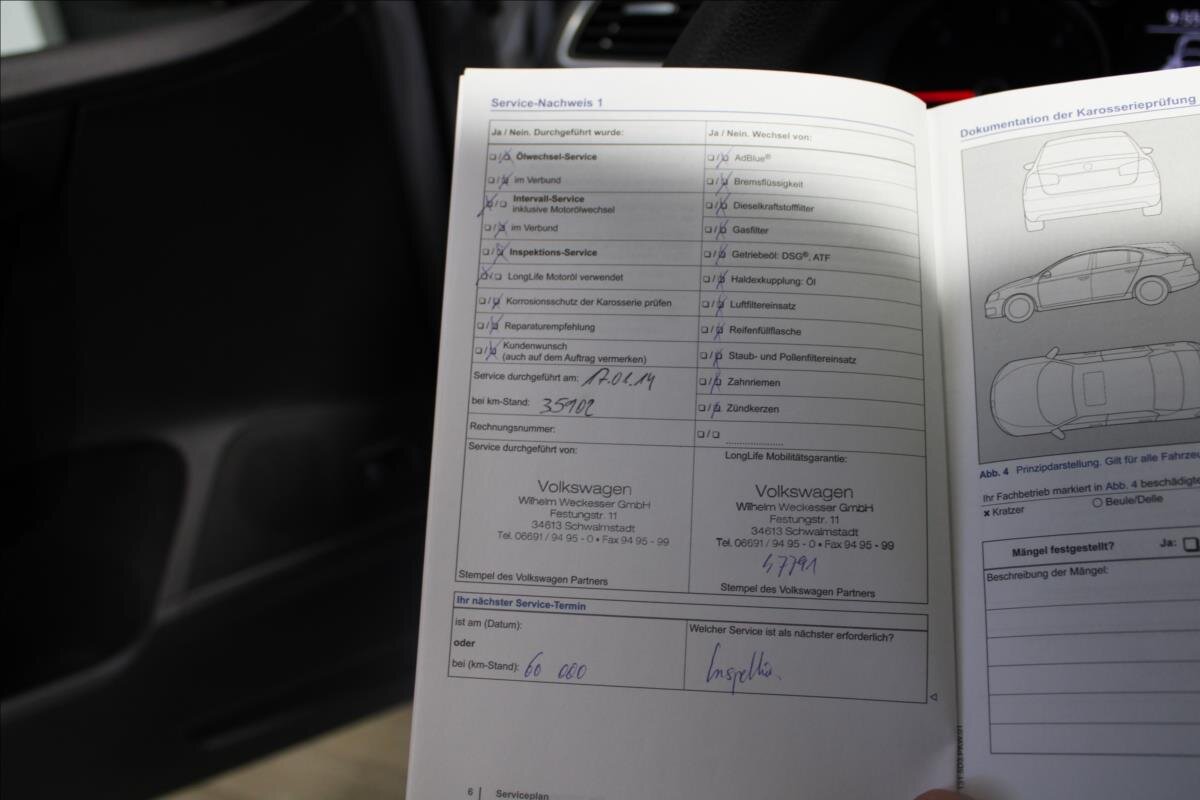 Service-Nachweis 1
Ja / Nein. Durchgeführt wurde:
❏ / ❏ Ölwechsel-Service
❏ / ❏ im Verbund
❏ / ❏ Intervall-Service
inklusive Motorölwechsel
❏ / ❏ im Verbund
❏ / ❏ Inspektions-Service
❏ / ❏ LongLife Motoröl verwendet
❏ / ❏ Korrosionsschutz der Karosserie prüfen
❏ / ❏ Reparaturempfehlung
❏ / ❏ Kundenwunsch
(auch auf dem Auftrag vermerken)
Service durchgeführt am: 17.01.14
bei km-Stand: 35902
Rechnungsnummer:
Service durchgeführt von:
Volkswagen
Wilhelm Weckesser GmbH
Festungstr. 11
34613 Schwalmstadt
Tel. 06691 / 94 95 - 0 • Fax 94 95 - 99
Stempel des Volkswagen Partners
Ja / Nein. Wechsel von:
❏ / ❏ AdBlue®
❏ / ❏ Bremsflüssigkeit
❏ / ❏ Dieselkraftstofffilter
❏ / ❏ Gasfilter
❏ / ❏ Getriebeöl: DSG®, ATF
❏ / ❏ Haldexkupplung: Öl
❏ / ❏ Luftfiltereinsatz
❏ / ❏ Reifenfüllflasche
❏ / ❏ Staub- und Pollenfiltereinsatz
❏ / ❏ Zahnriemen
❏ / ❏ Zündkerzen
❏ / ❏ ....................
LongLife Mobilitätsgarantie:
Volkswagen
Wilhelm Weckesser GmbH
Festungstr. 11
34613 Schwalmstadt
Tel. 06691 / 94 95 - 0 • Fax 94 95 - 99
47791
Stempel des Volkswagen Partners
Ihr nächster Service-Termin
ist am (Datum):
oder
bei (km-Stand): 60 000
Welcher Service ist als nächster erforderlich?
Inspektion.
6 | Serviceplan
Dokumentation der Karosserieprüfung
Abb. 4 Prinzipdarstellung. Gilt für alle
Ihr Fachbetrieb markiert in Abb. 4
× Kratzer ○ Beule/Delle
Mängel festgestellt? Ja: ❏
Beschreibung der Mängel: